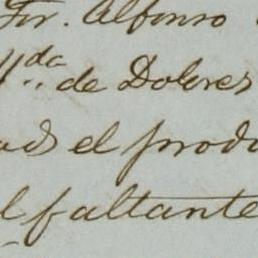 Fr. Alfonso
Hda de Dolores
el produ
l faltante